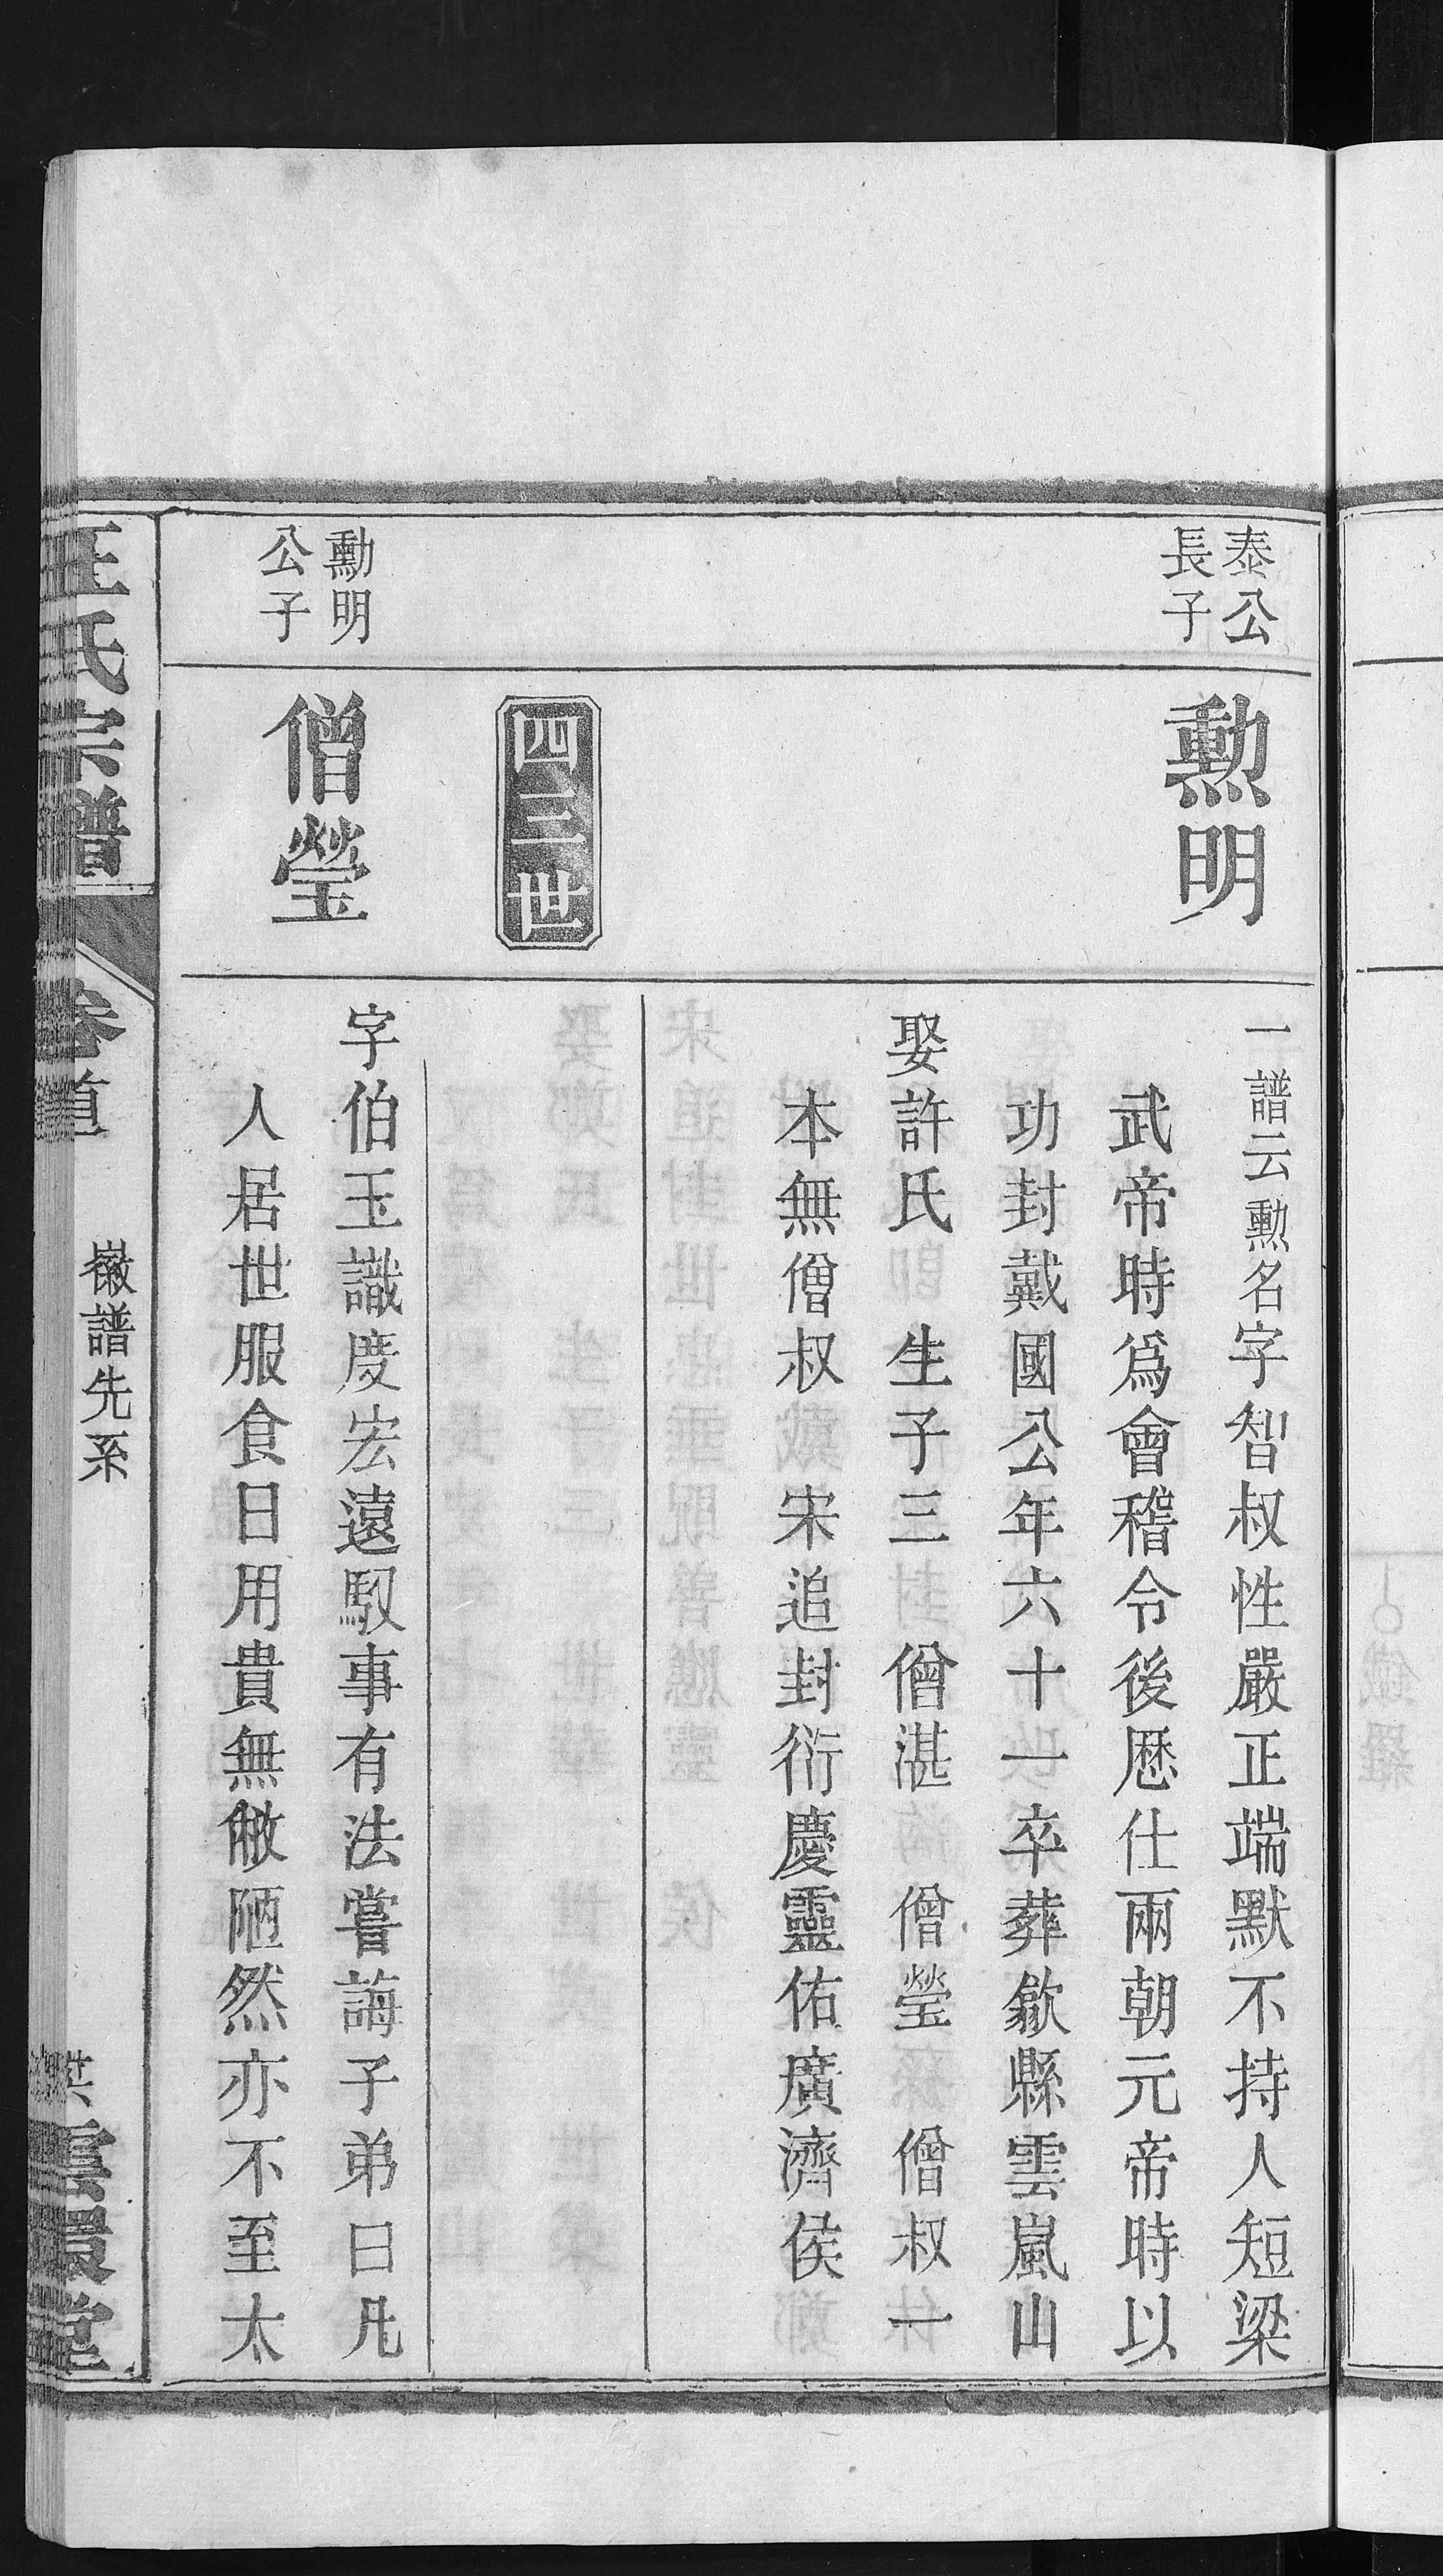 泰公
長子
勲明
一譜云勲名字智叔性嚴正端默不持人短梁
武帝時爲會稽令後歷仕兩朝元帝時以
功封戴國公年六十一卒葬歙縣雲嵐山
娶許氏　生子三　僧湛　僧瑩　僧叔一
本無僧叔　宋追封衍慶靈佑廣濟侯
四三世
勲明
公子
僧瑩
字伯玉識度宏遠馭事有法嘗誨子弟曰凡
人居世服食日用貴無敝陋然亦不至太
汪氏宗譜
卷首
徽譜先系
雲環堂